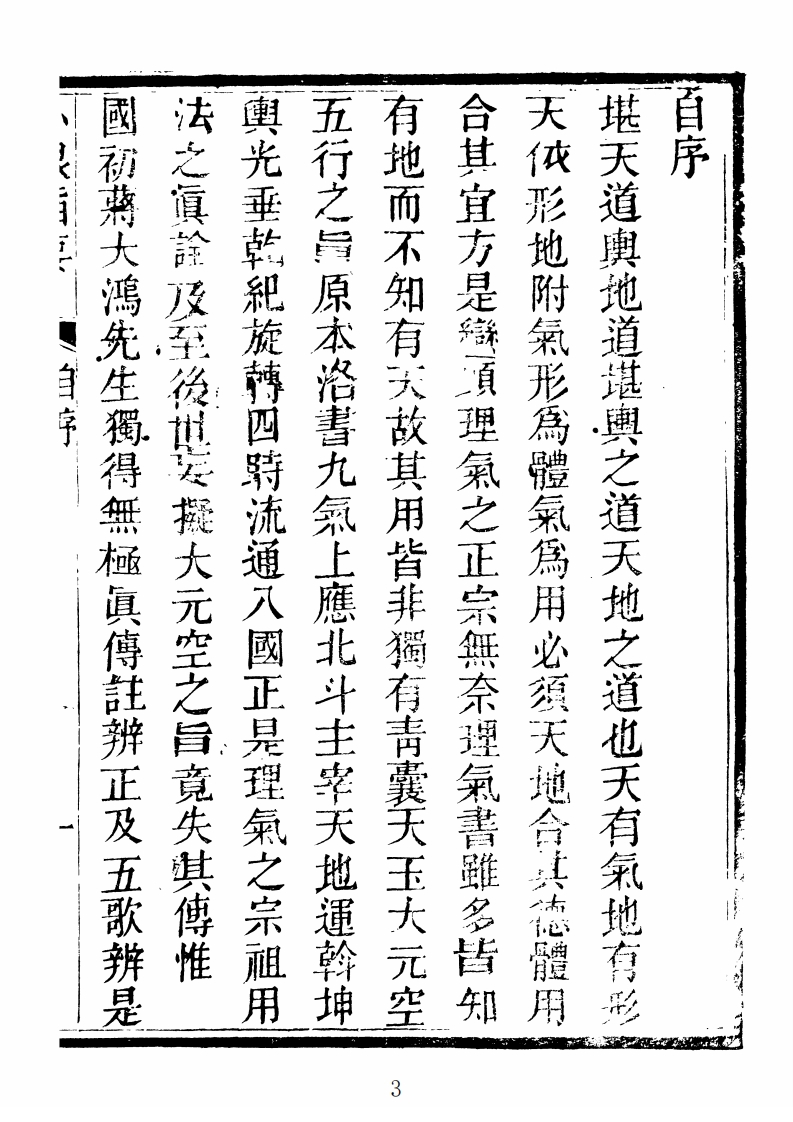 自序
堪天道輿地道堪輿之道天地之道也天有氣地有形
天依形地附氣形爲體氣爲用必須天地合其德體用
合其宜方是巒頭理氣之正宗無奈理氣書雖多皆知
有地而不知有天故其用皆非獨有青囊天玉大元空
五行之眞原本洛書九氣上應北斗主宰天地運斡坤
輿光垂乾紀旋轉四時流通八國正是理氣之宗祖用
法之眞詮及至後世妄擬大元空之旨竟失其傳惟
國初蔣大鴻先生獨得無極眞傳註辨正及五歌辨是
自序
一
3